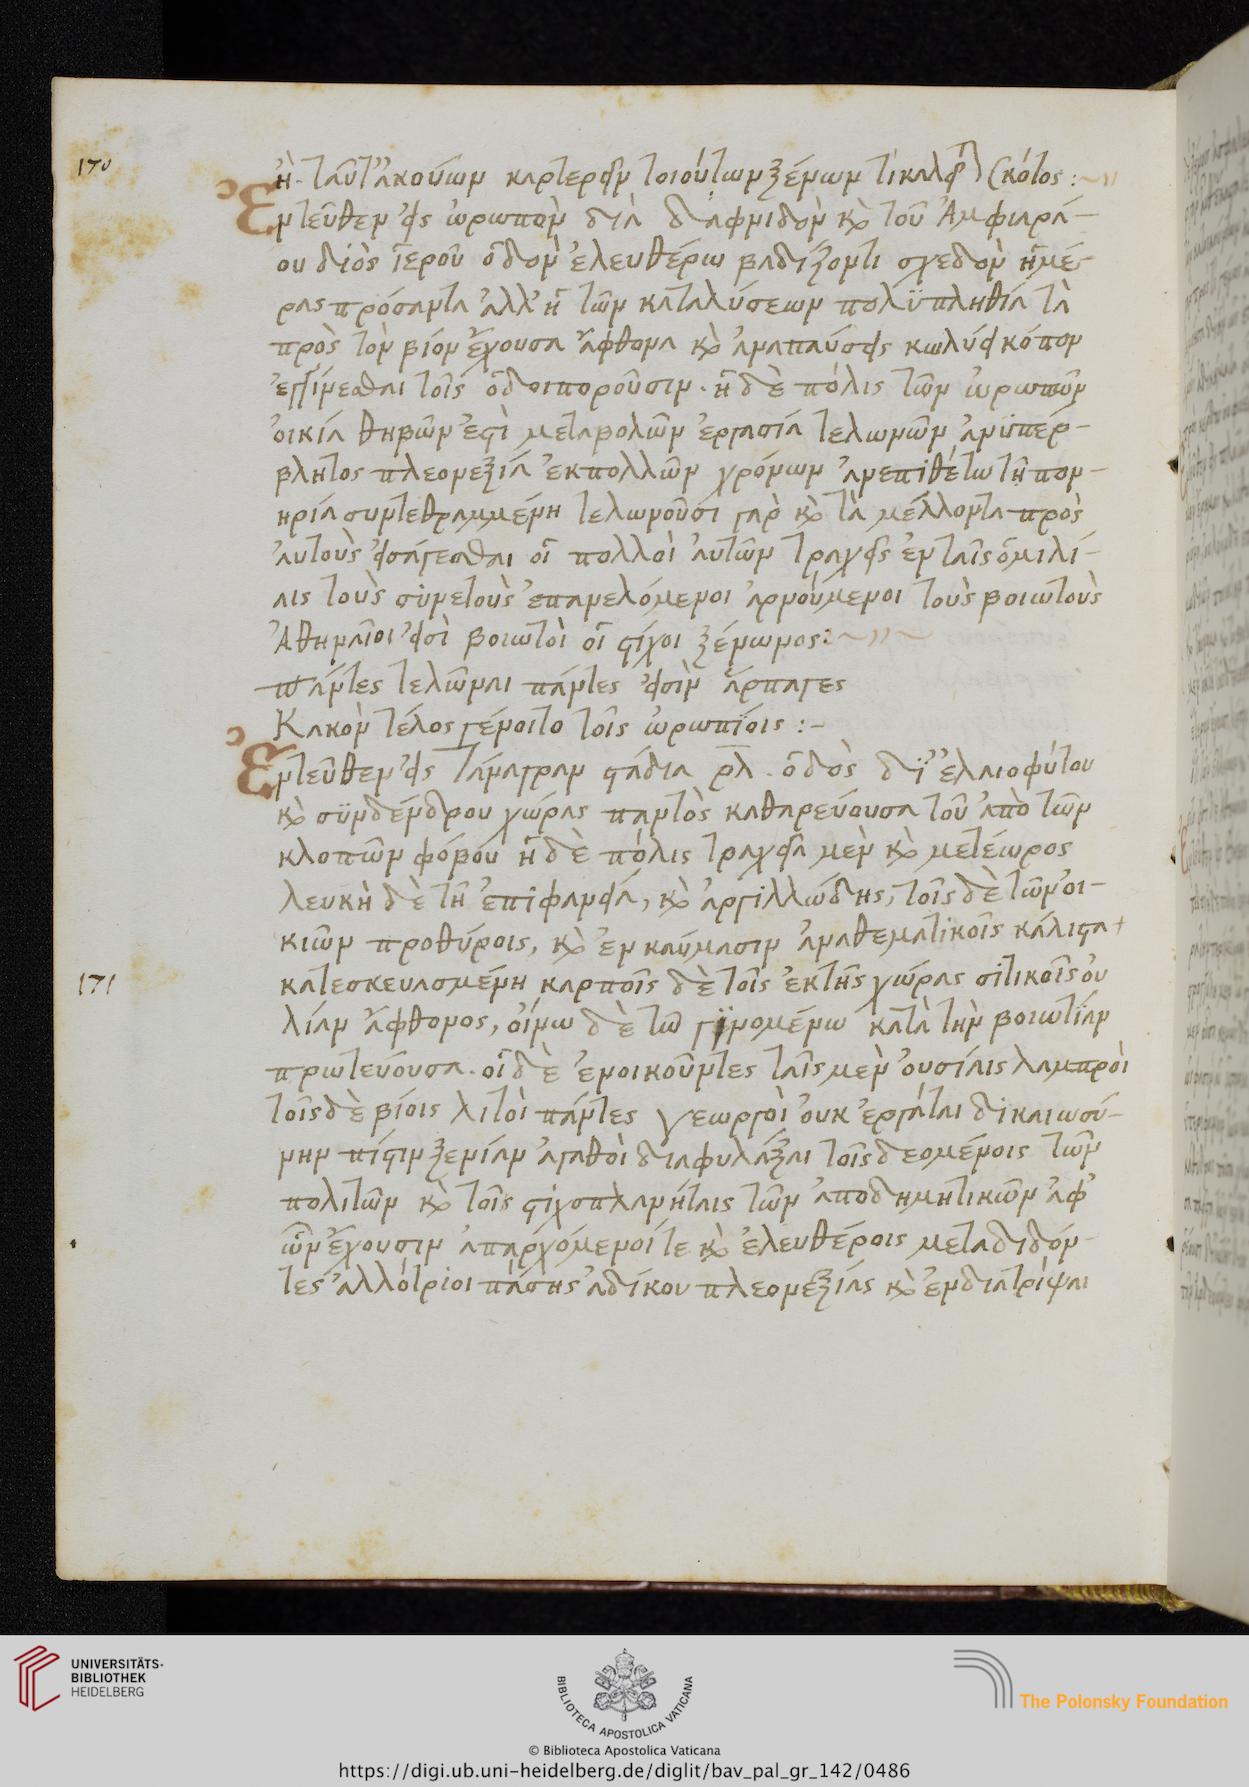 170
ἢ ταῦτ' ἀκούων καρτερεῖν τοιούτων ξένων τί καλεῖ σκότος :~
Ἐντεῦθεν εἰς ὠρωπὸν διὰ δαφνιδὸν καὶ τοῦ Ἀμφιαρά-
ου διὸς ἱεροῦ ὁδὸν ἐλευθέρω βαδίζοντι σχεδὸν ἡμέ-
ρας πρόσαντα ἀλλ' ἡ τῶν καταλύσεων πολυπληθία τὰ
πρὸς τὸν βίον ἔχουσα ἄφθονα καὶ ἀναπαύσεις κωλύει κόπον
ἐγγίνεσθαι τοῖς ὁδοιποροῦσιν. ἡ δὲ πόλις τῶν ὠρωπῶν
οἰκία θηβῶν ἐστὶ μεταβολῶν ἐργασία τελωνῶν ἀνυπέρ-
βλητος πλεονεξία ἐκ πολλῶν χρόνων ἀνεπιθέτω τῇ πον-
ηρία συντεθραμμένη τελωνοῦσι γὰρ καὶ τὰ μέλλοντα πρὸς
αὐτοὺς εἰσάγεσθαι οἱ πολλοὶ αὐτῶν τραχεῖς ἐν ταῖς ὁμιλί-
αις τοὺς συνετοὺς ἐπανελόμενοι ἀρνούμενοι τοὺς βοιωτοὺς
Ἀθηναῖοι εἰσὶ βοιωτοὶ οἱ στίχοι ξένωνος :~
πάντες τελῶναι πάντες εἰσὶν ἅρπαγες
Κακὸν τέλος γένοιτο τοῖς ὠρωπίοις :-
Ἐντεῦθεν εἰς Τάναγραν στάδια ρλ. ὁδὸς δι' ἐλαιοφύτου
καὶ συνδένδρου χώρας παντὸς καθαρεύουσα τοῦ ἀπὸ τῶν
κλοπῶν φόβου ἡ δὲ πόλις τραχεῖα μὲν καὶ μετέωρος
λευκὴ δὲ τῇ ἐπιφανείᾳ, καὶ ἀργιλλώδης, τοῖς δὲ τῶν οἰ-
κιῶν προθύροις, καὶ ἐν καύμασιν ἀναθεματικοῖς κάλιστα
171
κατεσκευασμένη καρποῖς δὲ τοῖς ἐκ τῆς χώρας σιτικοῖς οὐ
λίαν ἄφθονος, οἴνω δὲ τῶ γινομένω κατὰ τὴν βοιωτίαν
πρωτεύουσα. οἱ δὲ ἐνοικοῦντες ταῖς μὲν οὐσίαις λαμπροὶ
τοῖς δὲ βίοις λιτοὶ πάντες γεωργοὶ οὐκ ἐργάται δικαιωσύ-
νην πίστιν ξενίαν ἀγαθοὶ διαφυλάξαι τοῖς δεομένοις τῶν
πολιτῶν καὶ τοῖς στιχοπλανήταις τῶν ἀποδημητικῶν ἀφ'
ὧν ἔχουσιν ἀπαρχόμενοί τε καὶ ἐλευθέροις μεταδιδόν-
τες ἀλλότριοι πάσης ἀδίκου πλεονεξίας καὶ ἐνδιατρίψαι
UNIVERSITÄTS-
BIBLIOTHEK
HEIDELBERG
BIBLIOTECA APOSTOLICA VATICANA
The Polonsky Foundation
© Biblioteca Apostolica Vaticana
https://digi.ub.uni-heidelberg.de/diglit/bav_pal_gr_142/0486